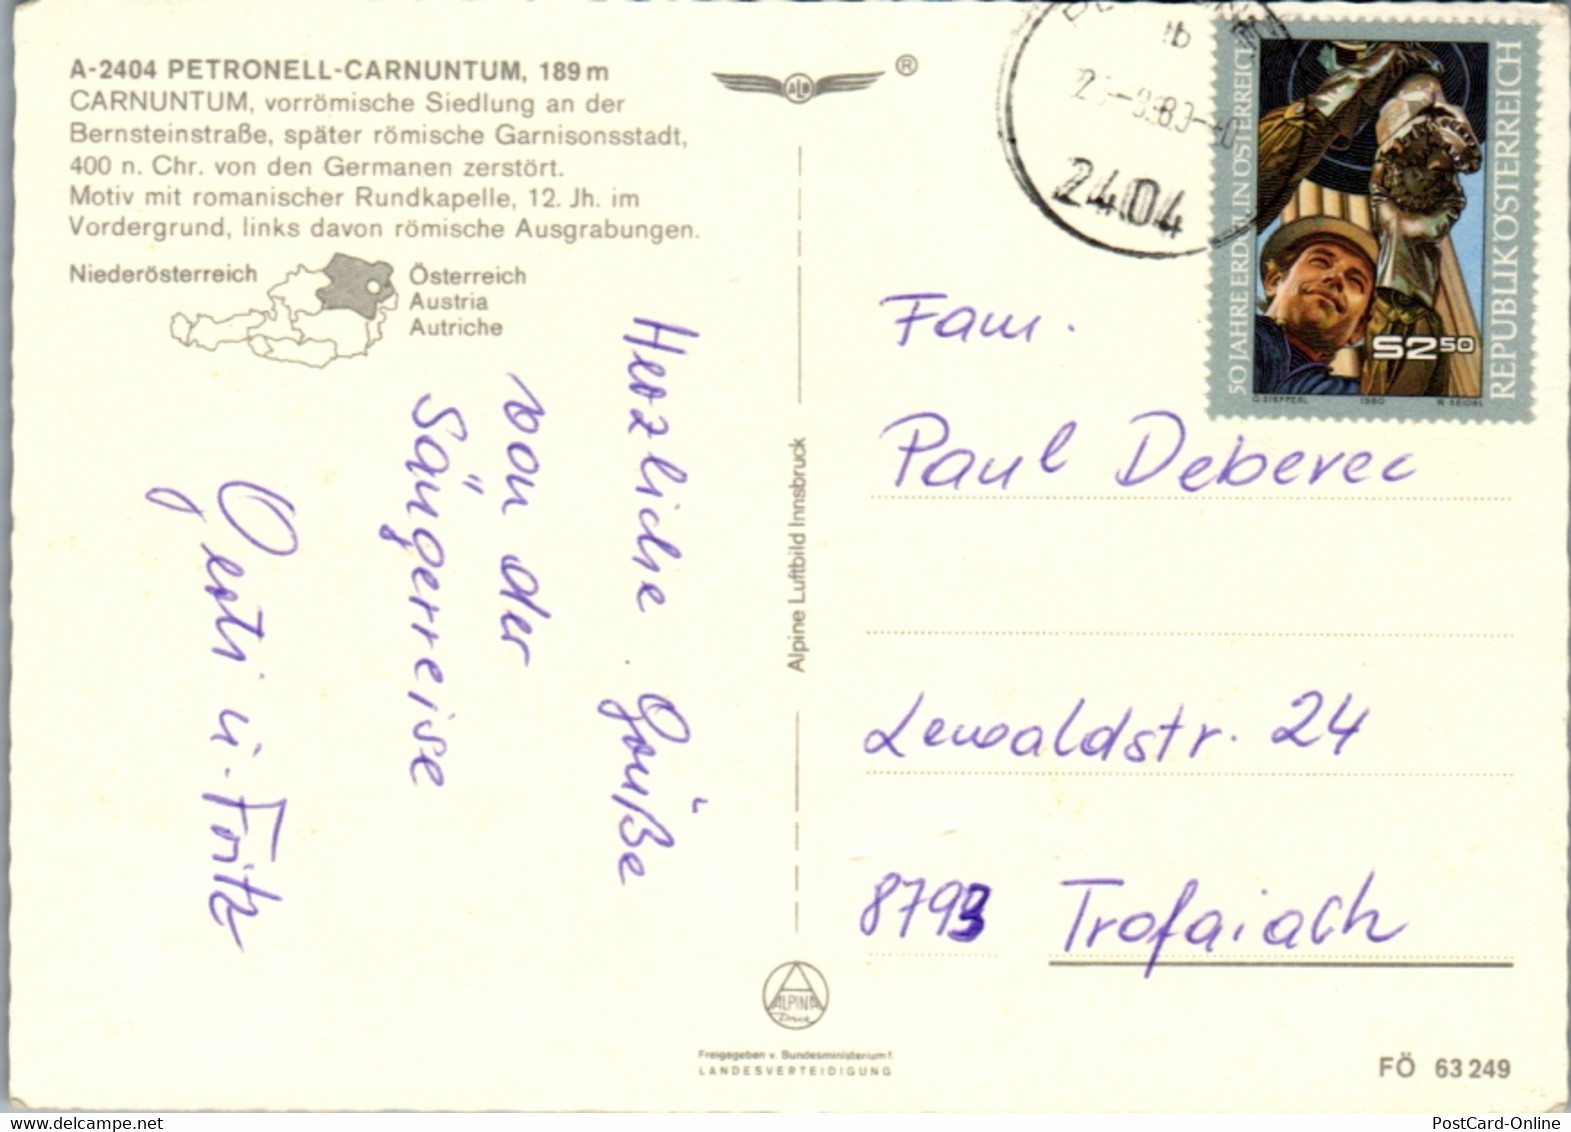 A-2404 PETRONELL-CARNUNTUM, 189 m
CARNUNTUM, vorrömische Siedlung an der
Bernsteinstraße, später römische Garnisonsstadt,
400 n. Chr. von den Germanen zerstört.
Motiv mit romanischer Rundkapelle, 12. Jh. im
Vordergrund, links davon römische Ausgrabungen.
Niederösterreich
Österreich
Austria
Autriche
Herzliche Grüße
von der
Sängerreise
Gerti u. Fritz
ALB
®
Alpine Luftbild Innsbruck
ALPINA
Druck
Freigegeben v. Bundesministerium f.
LANDESVERTEIDIGUNG
2404
50 JAHRE ERDÖL IN ÖSTERREICH
REPUBLIK ÖSTERREICH
S250
O. STEFFERL 1980 W. SEIDEL
Fam.
Paul Deberec
Lewaldstr. 24
8793 Trofaiach
FÖ 63 249
PostCard-Online